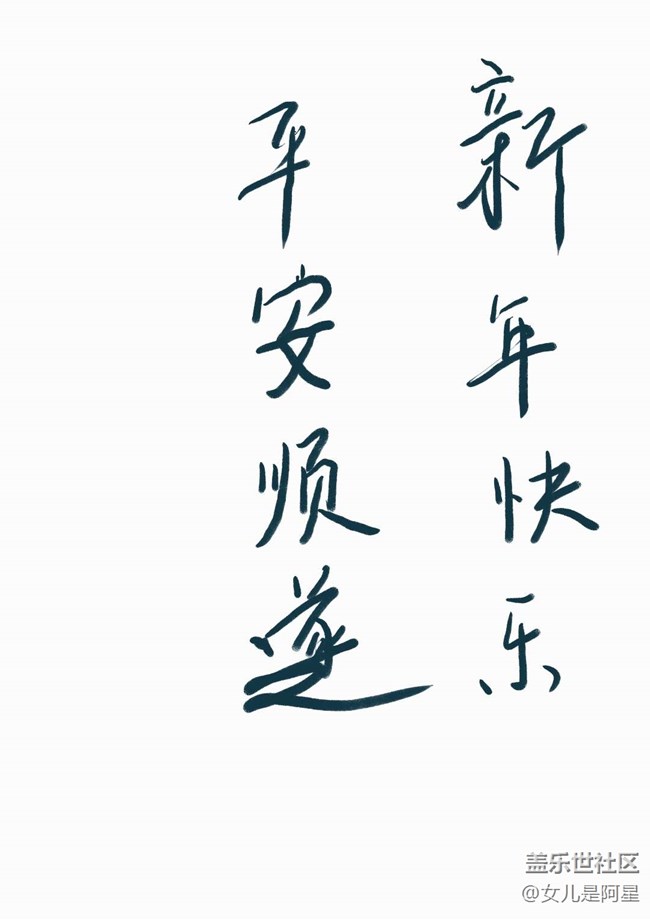 新年快乐
平安顺遂
盖乐世社区
@女儿是阿星